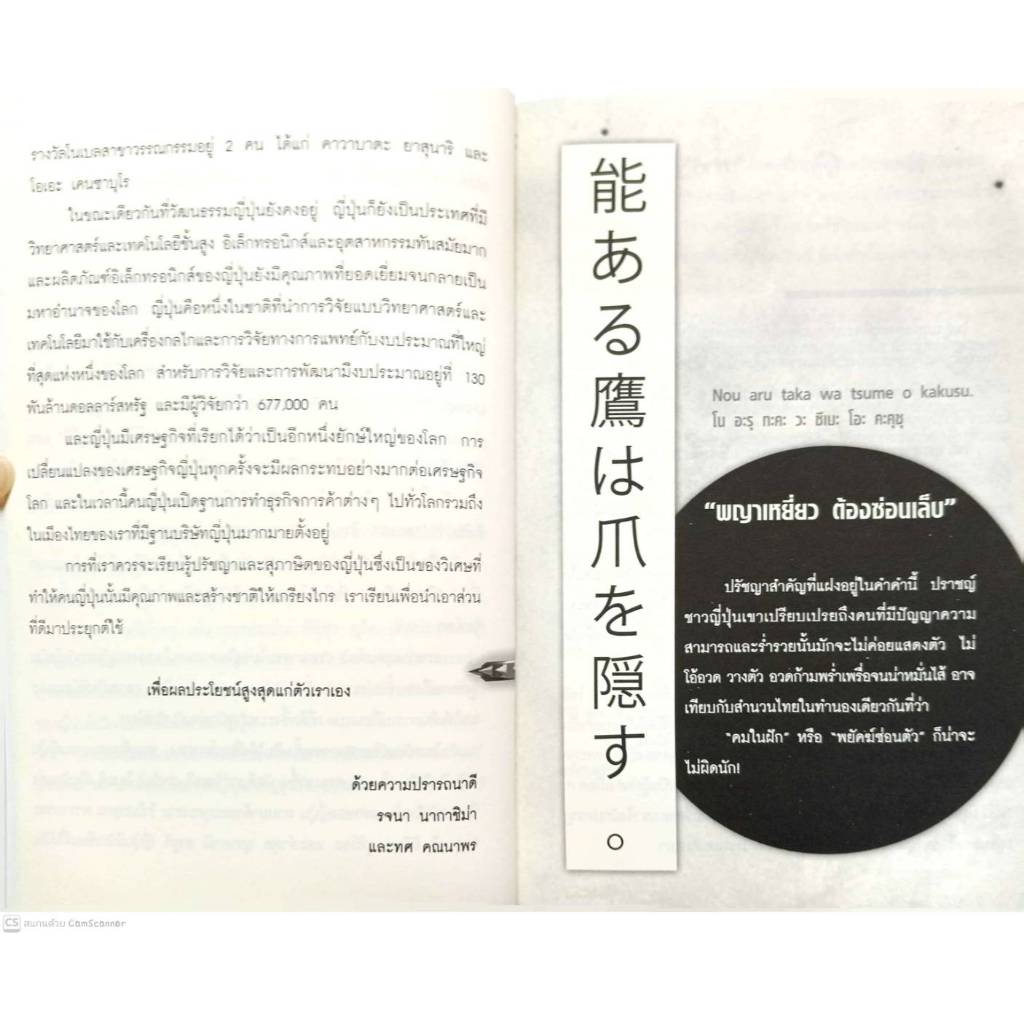 รางวัลโนเบลสาขาวรรณกรรมอยู่ 2 คน ได้แก่ คาวาบาตะ ยาสุนาริ และ
โอเอะ เคนซาบุโร
ในขณะเดียวกันที่วัฒนธรรมญี่ปุ่นยังคงอยู่ ญี่ปุ่นก็ยังเป็นประเทศที่มี
วิทยาศาสตร์และเทคโนโลยีชั้นสูง อิเล็กทรอนิกส์และอุตสาหกรรมทันสมัยมาก
และผลิตภัณฑ์อิเล็กทรอนิกส์ของญี่ปุ่นยังมีคุณภาพที่ยอดเยี่ยมจนกลายเป็น
มหาอำนาจของโลก ญี่ปุ่นคือหนึ่งในชาติที่นำการวิจัยแบบวิทยาศาสตร์และ
เทคโนโลยีมาใช้กับเครื่องกลไกและการวิจัยทางการแพทย์กับงบประมาณที่ใหญ่
ที่สุดแห่งหนึ่งของโลก สำหรับการวิจัยและการพัฒนามีงบประมาณอยู่ที่ 130
พันล้านดอลลาร์สหรัฐ และมีผู้วิจัยกว่า 677,000 คน
และญี่ปุ่นมีเศรษฐกิจที่เรียกได้ว่าเป็นอีกหนึ่งยักษ์ใหญ่ของโลก การ
เปลี่ยนแปลงของเศรษฐกิจญี่ปุ่นทุกครั้งจะมีผลกระทบอย่างมากต่อเศรษฐกิจ
โลก และในเวลานี้คนญี่ปุ่นเปิดฐานการทำธุรกิจการค้าต่างๆ ไปทั่วโลกรวมถึง
ในเมืองไทยของเราที่มีฐานบริษัทญี่ปุ่นมากมายตั้งอยู่
การที่เราควรจะเรียนรู้ปรัชญาและสุภาษิตของญี่ปุ่นซึ่งเป็นของวิเศษที่
ทำให้คนญี่ปุ่นนั้นมีคุณภาพและสร้างชาติให้เกรียงไกร เราเรียนเพื่อนำเอาส่วน
ที่ดีมาประยุกต์ใช้
เพื่อผลประโยชน์สูงสุดแก่ตัวเราเอง
ด้วยความปรารถนาดี
รจนา นากาชิม่า
และทศ คณนาพร
能ある鷹は爪を隠す。
Nou aru taka wa tsume o kakusu.
โน อะรุ ทะคะ วะ ซึเมะ โอะ คะคุซุ
“พญาเหยี่ยว ต้องซ่อนเล็บ”
ปรัชญาสำคัญที่แฝงอยู่ในคำคำนี้ ปราชญ์
ชาวญี่ปุ่นเขาเปรียบเปรยถึงคนที่มีปัญญาความ
สามารถและร่ำรวยนั้นมักจะไม่ค่อยแสดงตัว ไม่
โอ้อวด วางตัว อวดก้ามพร่ำเพรื่อจนน่าหมั่นไส้ อาจ
เทียบกับสำนวนไทยในทำนองเดียวกันที่ว่า
“คมในฝัก” หรือ “พยัคฆ์ซ่อนตัว” ก็น่าจะ
ไม่ผิดนัก!
CS สแกนด้วย CamScanner